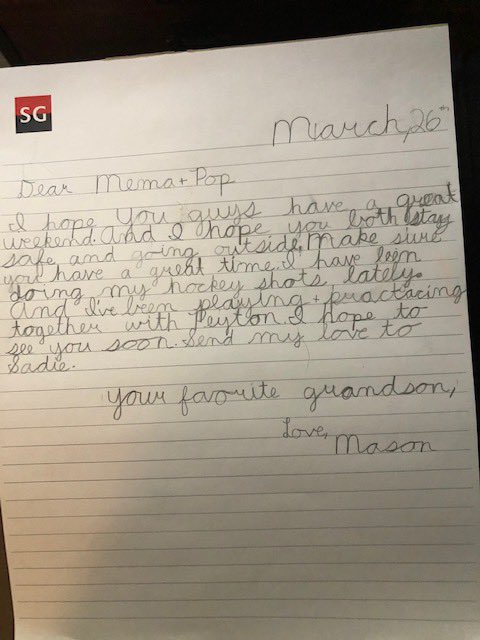 SG
March, 26th
Dear Mema + Pop
I hope you guys have a great
weekend. And I hope you both stay
safe and going outside. Make sure
you have a great time. I have been
doing my hockey shots, lately.
And I've been playing + practacing
together with Peyton. I hope to
see you soon. Send my love to
Sadie.
Your favorite grandson,
Love,
Mason